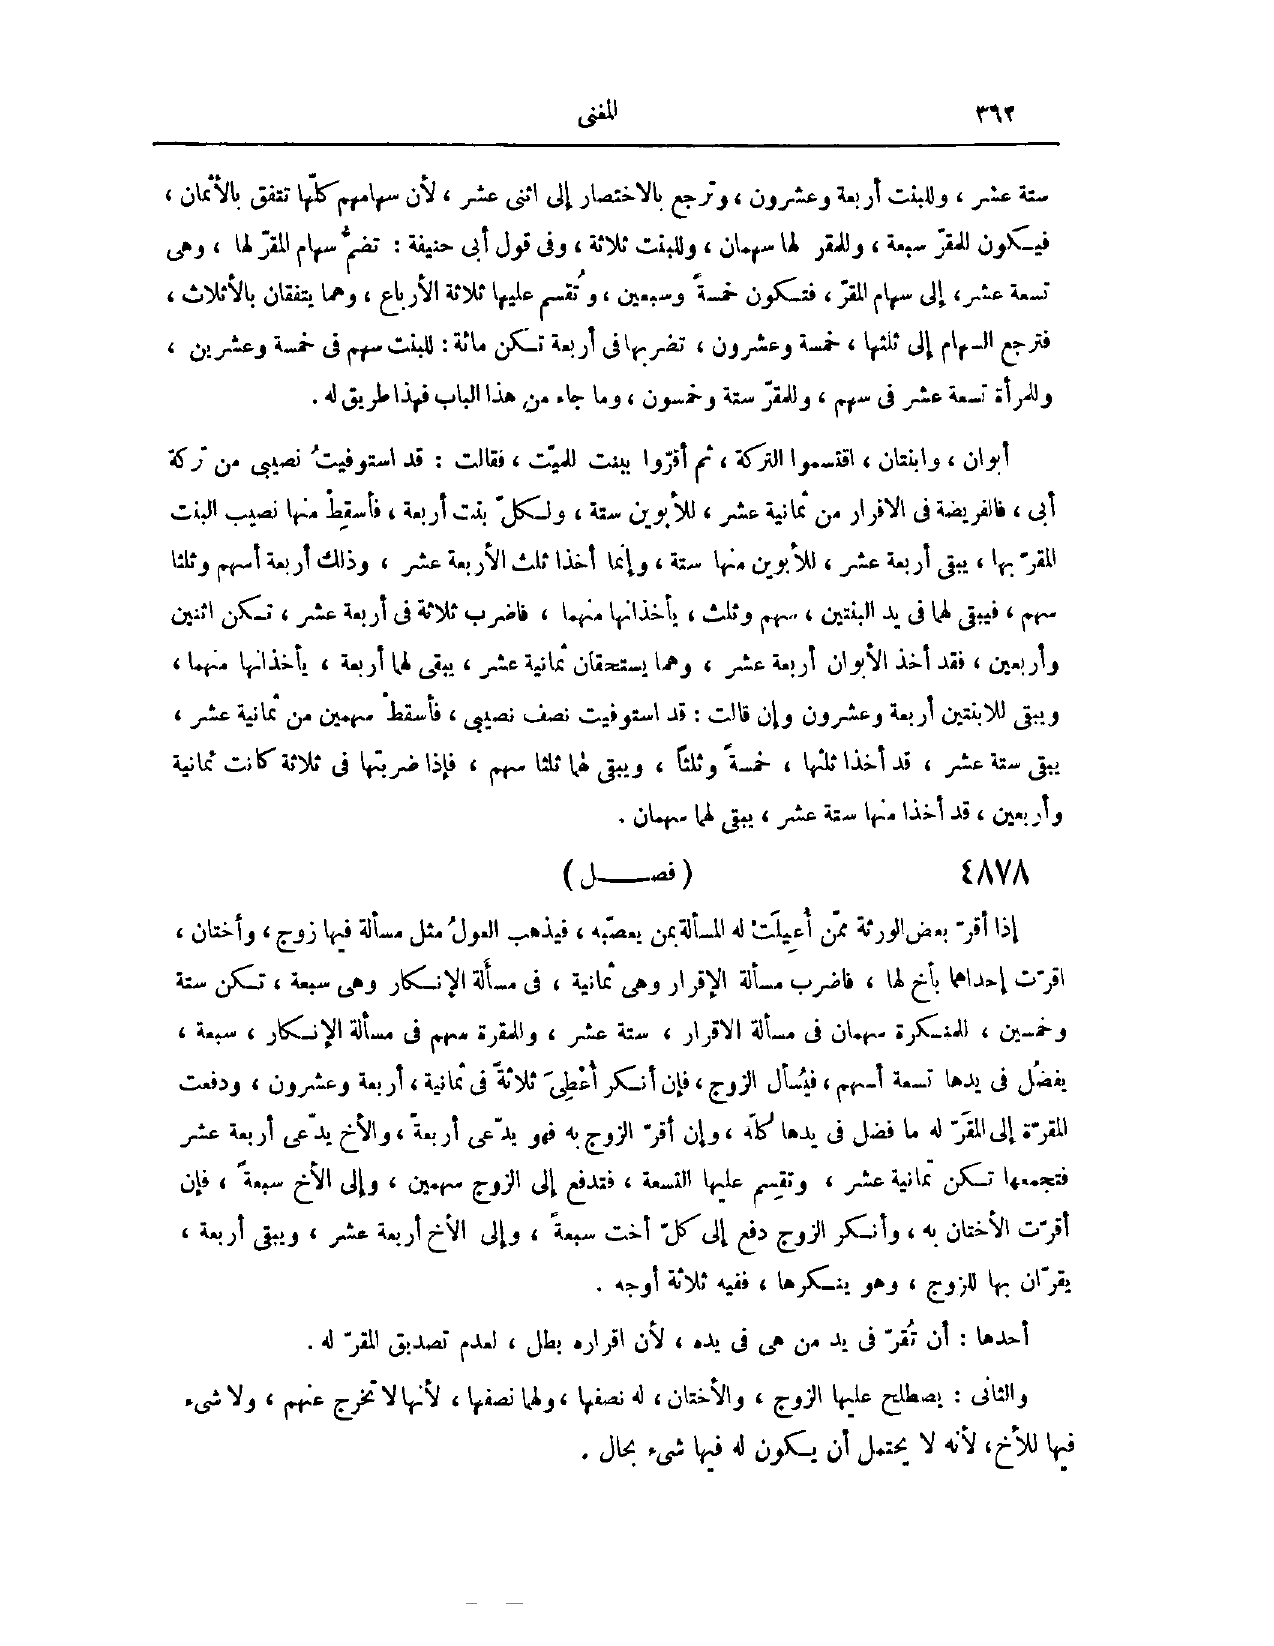 ٣٦٢ المغنى
ستة عشر ، وللبنت أربعة وعشرون ، وترجع بالاختصار إلى اثنى عشر ، لأن سهامهم كلّها تتفق بالأثمان ،
فيكون للمقرّ سبعة ، وللمقر لها سهمان ، وللبنت ثلاثة ، وفى قول أبى حنيفة : تضمُّ سهام المقرّ لها ، وهى
تسعة عشر، إلى سهام المقرّ ، فتكون خمسةً وسبعين ، وتُقسم عليها ثلاثة الأرباع ، وهما يتفقان بالأثلاث ،
فترجع السهام إلى ثلثها ، خمسة وعشرون ، تضربها فى أربعة تكن مائة : للبنت سهم فى خمسة وعشرين ،
وللمرأة تسعة عشر فى سهم ، وللمقرّ ستة وخمسون ، وما جاء من هذا الباب فهذا طريق له .
أبوان ، وابنتان ، اقتسموا التركة ، ثم أقرّوا ببنت للميّت ، فقالت : قد استوفيتُ نصيبى من تركة
أبى ، فالفريضة فى الاقرار من ثمانية عشر ، للأبوين ستة ، ولكلّ بنت أربعة ، فأسقِطْ منها نصيب البنت
المقرّ بها ، يبقى أربعة عشر ، للأبوين منها ستة ، وإنما أخذا ثلث الأربعة عشر ، وذلك أربعة أسهم وثلثا
سهم ، فيبقى لهما فى يد البنتين ، سهم وثلث ، يأخذانها منهما ، فاضرب ثلاثة فى أربعة عشر ، تكن اثنين
وأربعين ، فقد أخذ الأبوان أربعة عشر ، وهما يستحقان ثمانية عشر ، يبقى لهما أربعة ، يأخذانها منهما ،
ويبقى للابنتين أربعة وعشرون وإن قالت : قد استوفيت نصف نصيبى ، فأسقطْ سهمين من ثمانية عشر ،
يبقى ستة عشر ، قد أخذا ثلثها ، خمسةً وثلثاً ، ويبقى لهما ثلثا سهم ، فإذا ضربتها فى ثلاثة كانت ثمانية
وأربعين ، قد أخذا منها ستة عشر ، يبقى لهما سهمان .
٤٨٧٨ ( فصـــل )
إذا أقرّ بعض الورثة ممّن أُعِيلَتْ له المسألة بمن يعصّبه ، فيذهب العولُ مثل مسألة فيها زوج ، وأختان ،
اقرّت إحداهما بأخ لها ، فاضرب مسألة الإقرار وهى ثمانية ، فى مسألة الإنكار وهى سبعة ، تكن ستة
وخمسين ، للمنكرة سهمان فى مسألة الاقرار ، ستة عشر ، وللمقرة سهم فى مسألة الإنكار ، سبعة ،
يفضُل فى يدها تسعة أسهم ، فيُسأل الزوج ، فإن أنكر أُعْطِىَ ثلاثةً فى ثمانية ، أربعة وعشرون ، ودفعت
المقرّة إلى المقَرّ له ما فضل فى يدها كلّه ، وإن أقرّ الزوج به فهو يدّعى أربعةً ، والأخ يدّعى أربعة عشر
فتجمعها تكن ثمانية عشر ، وتقسِم عليها التسعة ، فتدفع إلى الزوج سهمين ، وإلى الأخ سبعةً ، فإن
أقرّت الأختان به ، وأنكر الزوج دفع إلى كلّ أخت سبعةً ، وإلى الأخ أربعة عشر ، ويبقى أربعة ،
يقرّان بها للزوج ، وهو ينكرها ، ففيه ثلاثة أوجه .
أحدها : أن تُقرّ فى يد من هى فى يده ، لأن اقراره بطل ، لعدم تصديق المقرّ له .
والثانى : يصطلح عليها الزوج ، والأختان ، له نصفها ، ولهما نصفها ، لأنها لا تخرج عنهم ، ولا شىء
فيها للأخ، لأنه لا يحتمل أن يكون له فيها شىء بحال .